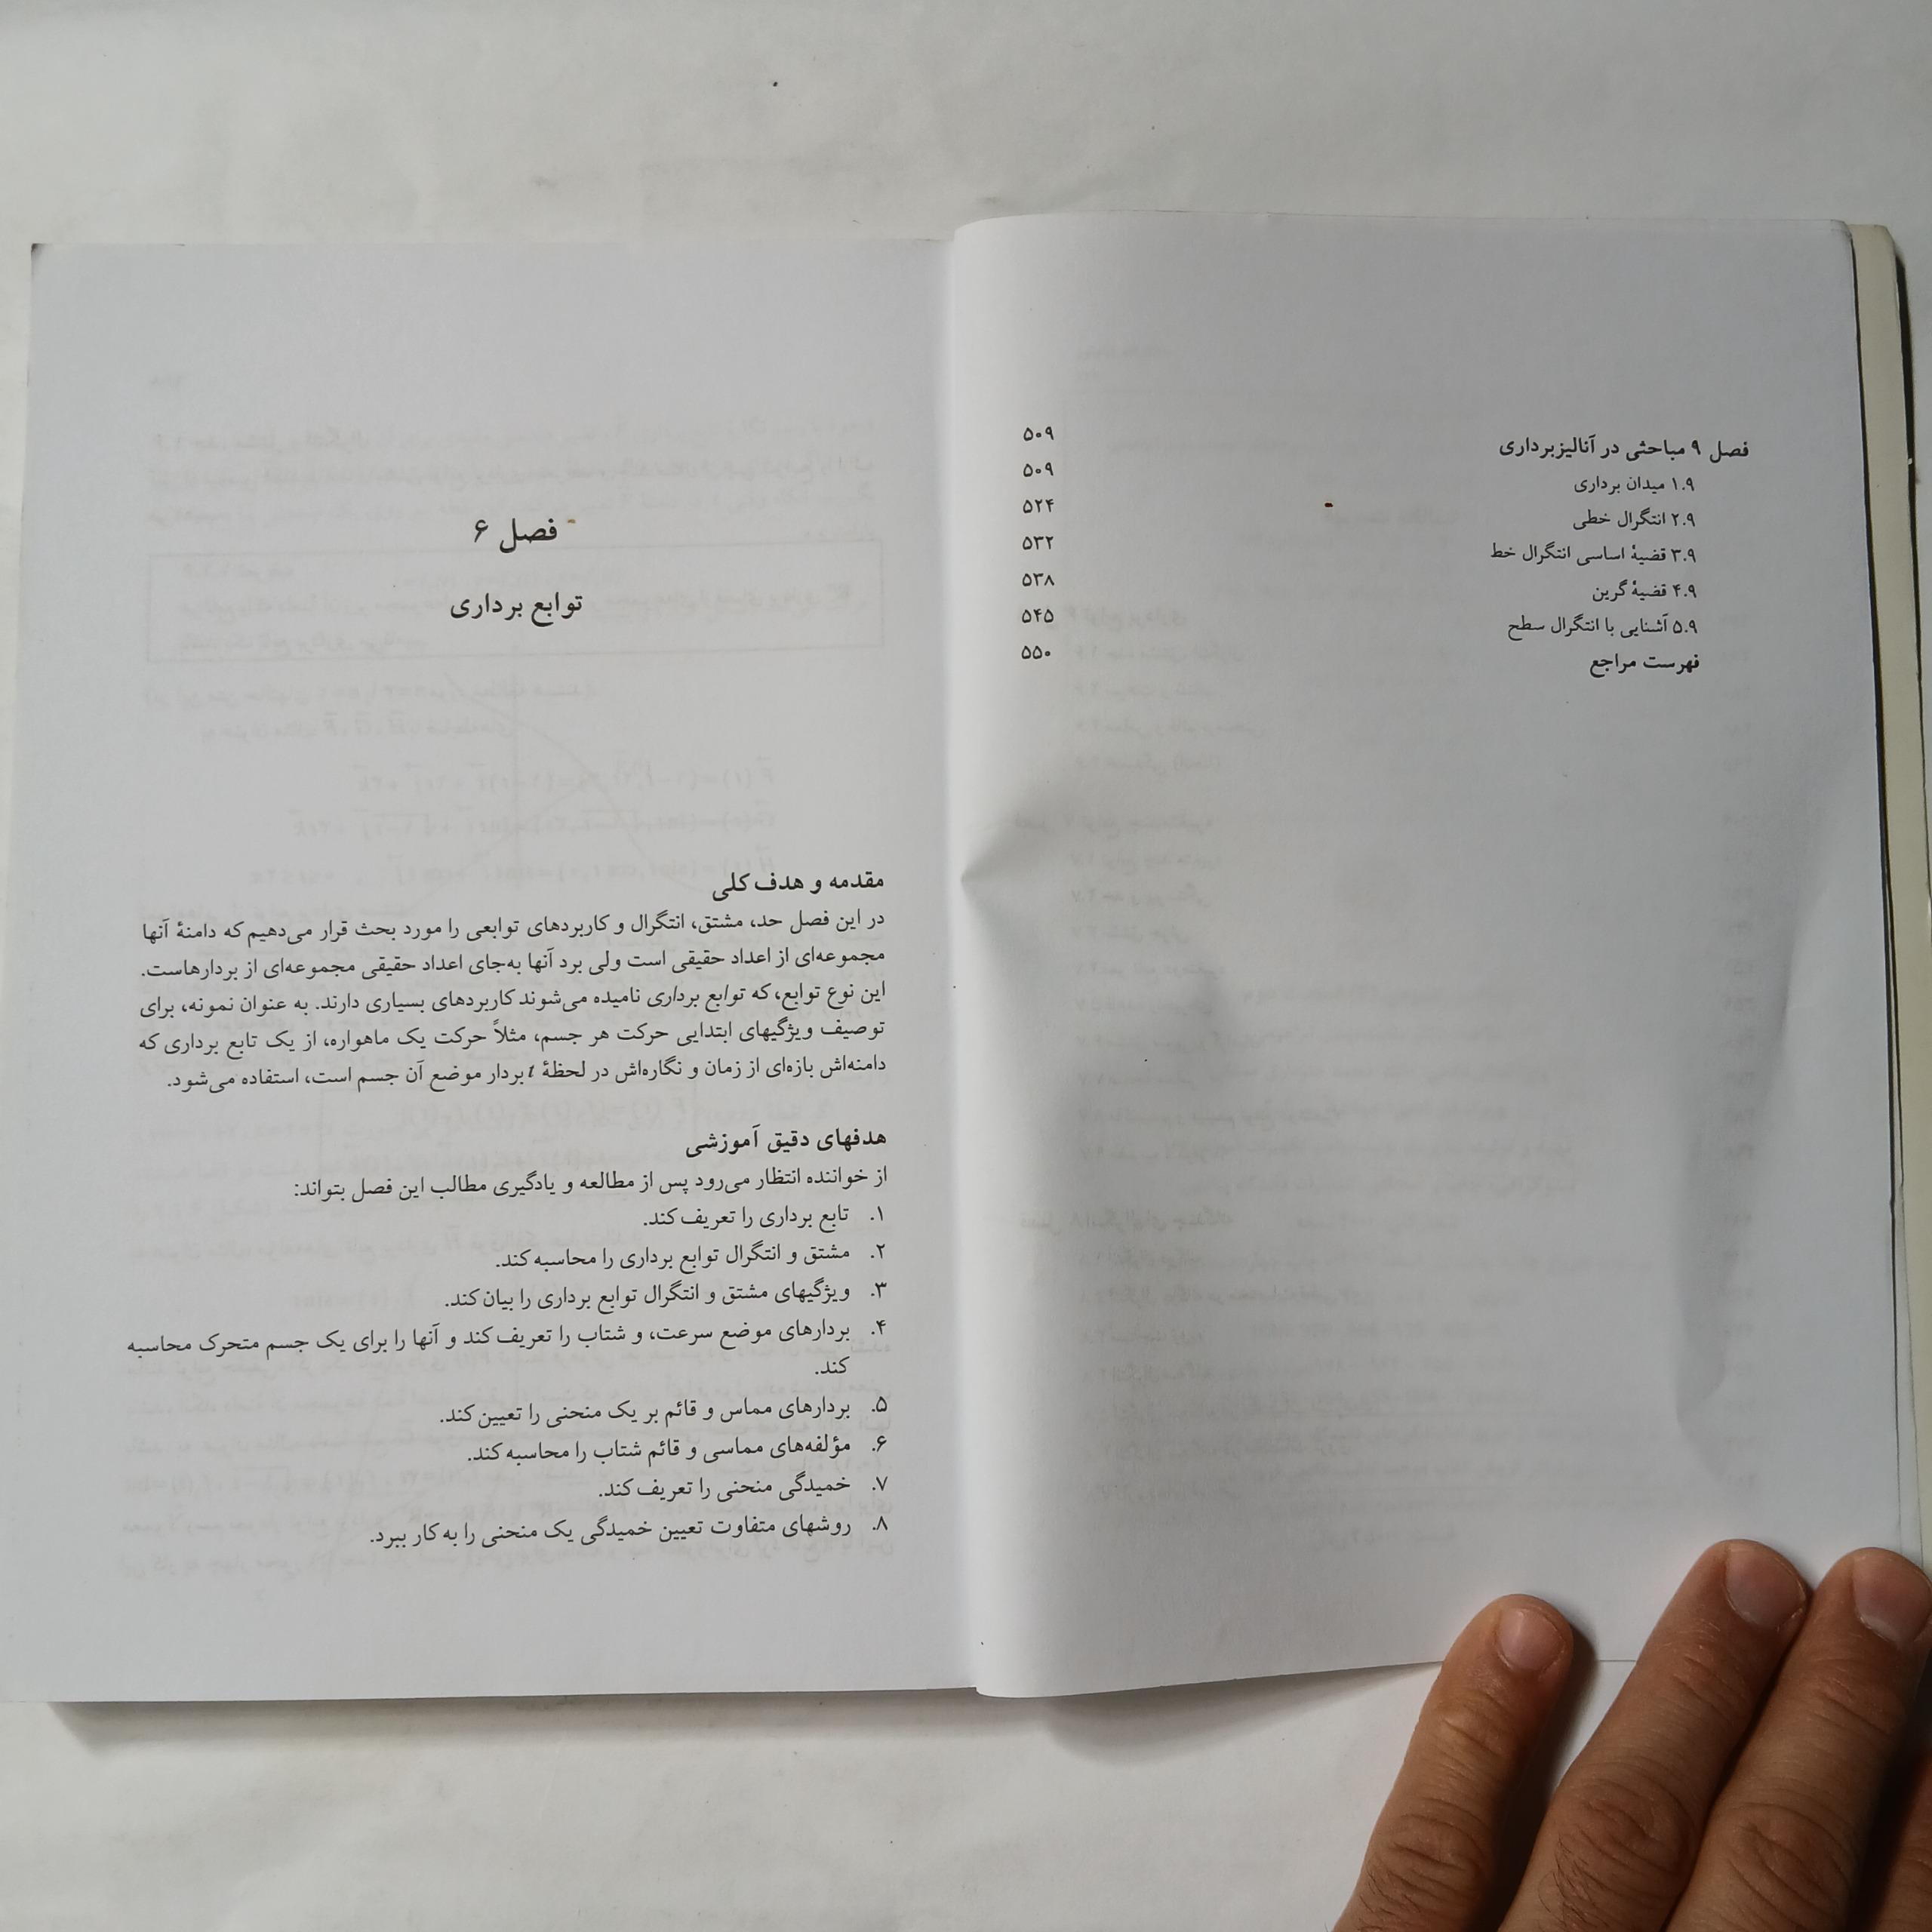 فصل ۹ مباحثی در آنالیزبرداری ۵۰۹
۱.۹ میدان برداری ۵۰۹
۲.۹ انتگرال خطی ۵۲۴
۳.۹ قضیهٔ اساسی انتگرال خط ۵۳۲
۴.۹ قضیهٔ گرین ۵۳۸
۵.۹ آشنایی با انتگرال سطح ۵۴۵
فهرست مراجع ۵۵۰
فصل ۶
توابع برداری
مقدمه و هدف کلی
در این فصل حد، مشتق، انتگرال و کاربردهای توابعی را مورد بحث قرار می‌دهیم که دامنهٔ آنها
مجموعه‌ای از اعداد حقیقی است ولی برد آنها به‌جای اعداد حقیقی مجموعه‌ای از بردارهاست.
این نوع توابع،که توابع برداری نامیده می‌شوند کاربردهای بسیاری دارند. به عنوان نمونه، برای
توصیف ویژگیهای ابتدایی حرکت هر جسم، مثلاً حرکت یک ماهواره، از یک تابع برداری که
دامنه‌اش بازه‌ای از زمان و نگاره‌اش در لحظهٔ t بردار موضع آن جسم است، استفاده می‌شود.
هدفهای دقیق آموزشی
از خواننده انتظار می‌رود پس از مطالعه و یادگیری مطالب این فصل بتواند:
۱. تابع برداری را تعریف کند.
۲. مشتق و انتگرال توابع برداری را محاسبه کند.
۳. ویژگیهای مشتق و انتگرال توابع برداری را بیان کند.
۴. بردارهای موضع سرعت، و شتاب را تعریف کند و آنها را برای یک جسم متحرک محاسبه
کند.
۵. بردارهای مماس و قائم بر یک منحنی را تعیین کند.
۶. مؤلفه‌های مماسی و قائم شتاب را محاسبه کند.
۷. خمیدگی منحنی را تعریف کند.
۸. روشهای متفاوت تعیین خمیدگی یک منحنی را به کار ببرد.